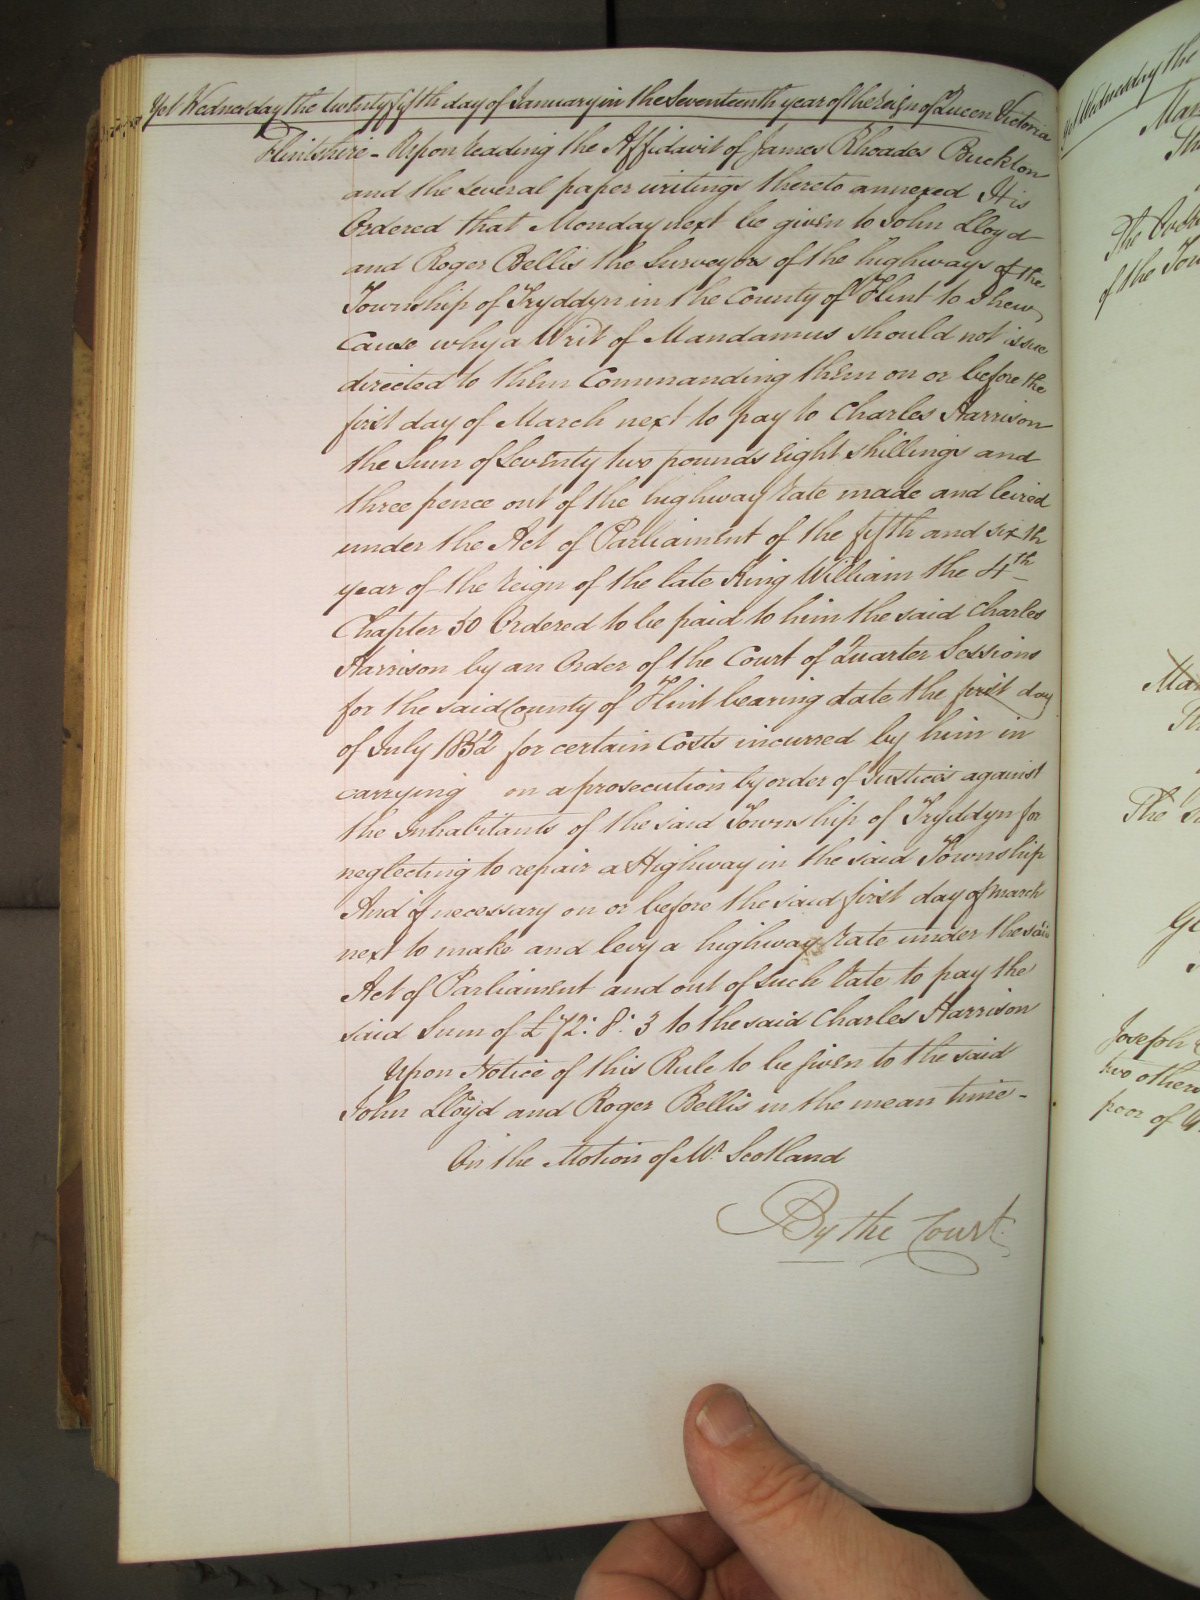 Yet Wednesday the twenty fifth day of January in the Seventeenth year of the reign of Queen Victoria
Flintshire - Upon reading the Affidavit of James Rhoades Buckton
and the several paper writings thereto annexed It is
Ordered that Monday next be given to John Lloyd
and Roger Bellis the Surveyors of the highways of the
Township of Tryddyn in the County of Flint to Shew
Cause why a Writ of Mandamus should not issue
directed to them Commanding them on or before the
first day of March next to pay to Charles Harrison
the Sum of Seventy two pounds eight shillings and
three pence out of the highway rate made and levied
under the Act of Parliament of the fifth and sixth
year of the reign of the late King William the 4th
Chapter 50 Ordered to be paid to him the said Charles
Harrison by an Order of the Court of Quarter Sessions
for the said County of Flint bearing date the first day
of July 1852 for certain Costs incurred by him in
carrying on a prosecution by order of Justices against
the inhabitants of the said Township of Tryddyn for
neglecting to repair a Highway in the said Township
And if necessary on or before the said first day of March
next to make and levy a highway rate under the said
Act of Parliament and out of such rate to pay the
said Sum of £72: 8: 3 to the said Charles Harrison
Upon Notice of this Rule to be given to the said
John Lloyd and Roger Bellis in the mean time -
On the Motion of Mr Scotland
By the Court
Wednesday the
The
of the
The
Joseph
two others
poor of